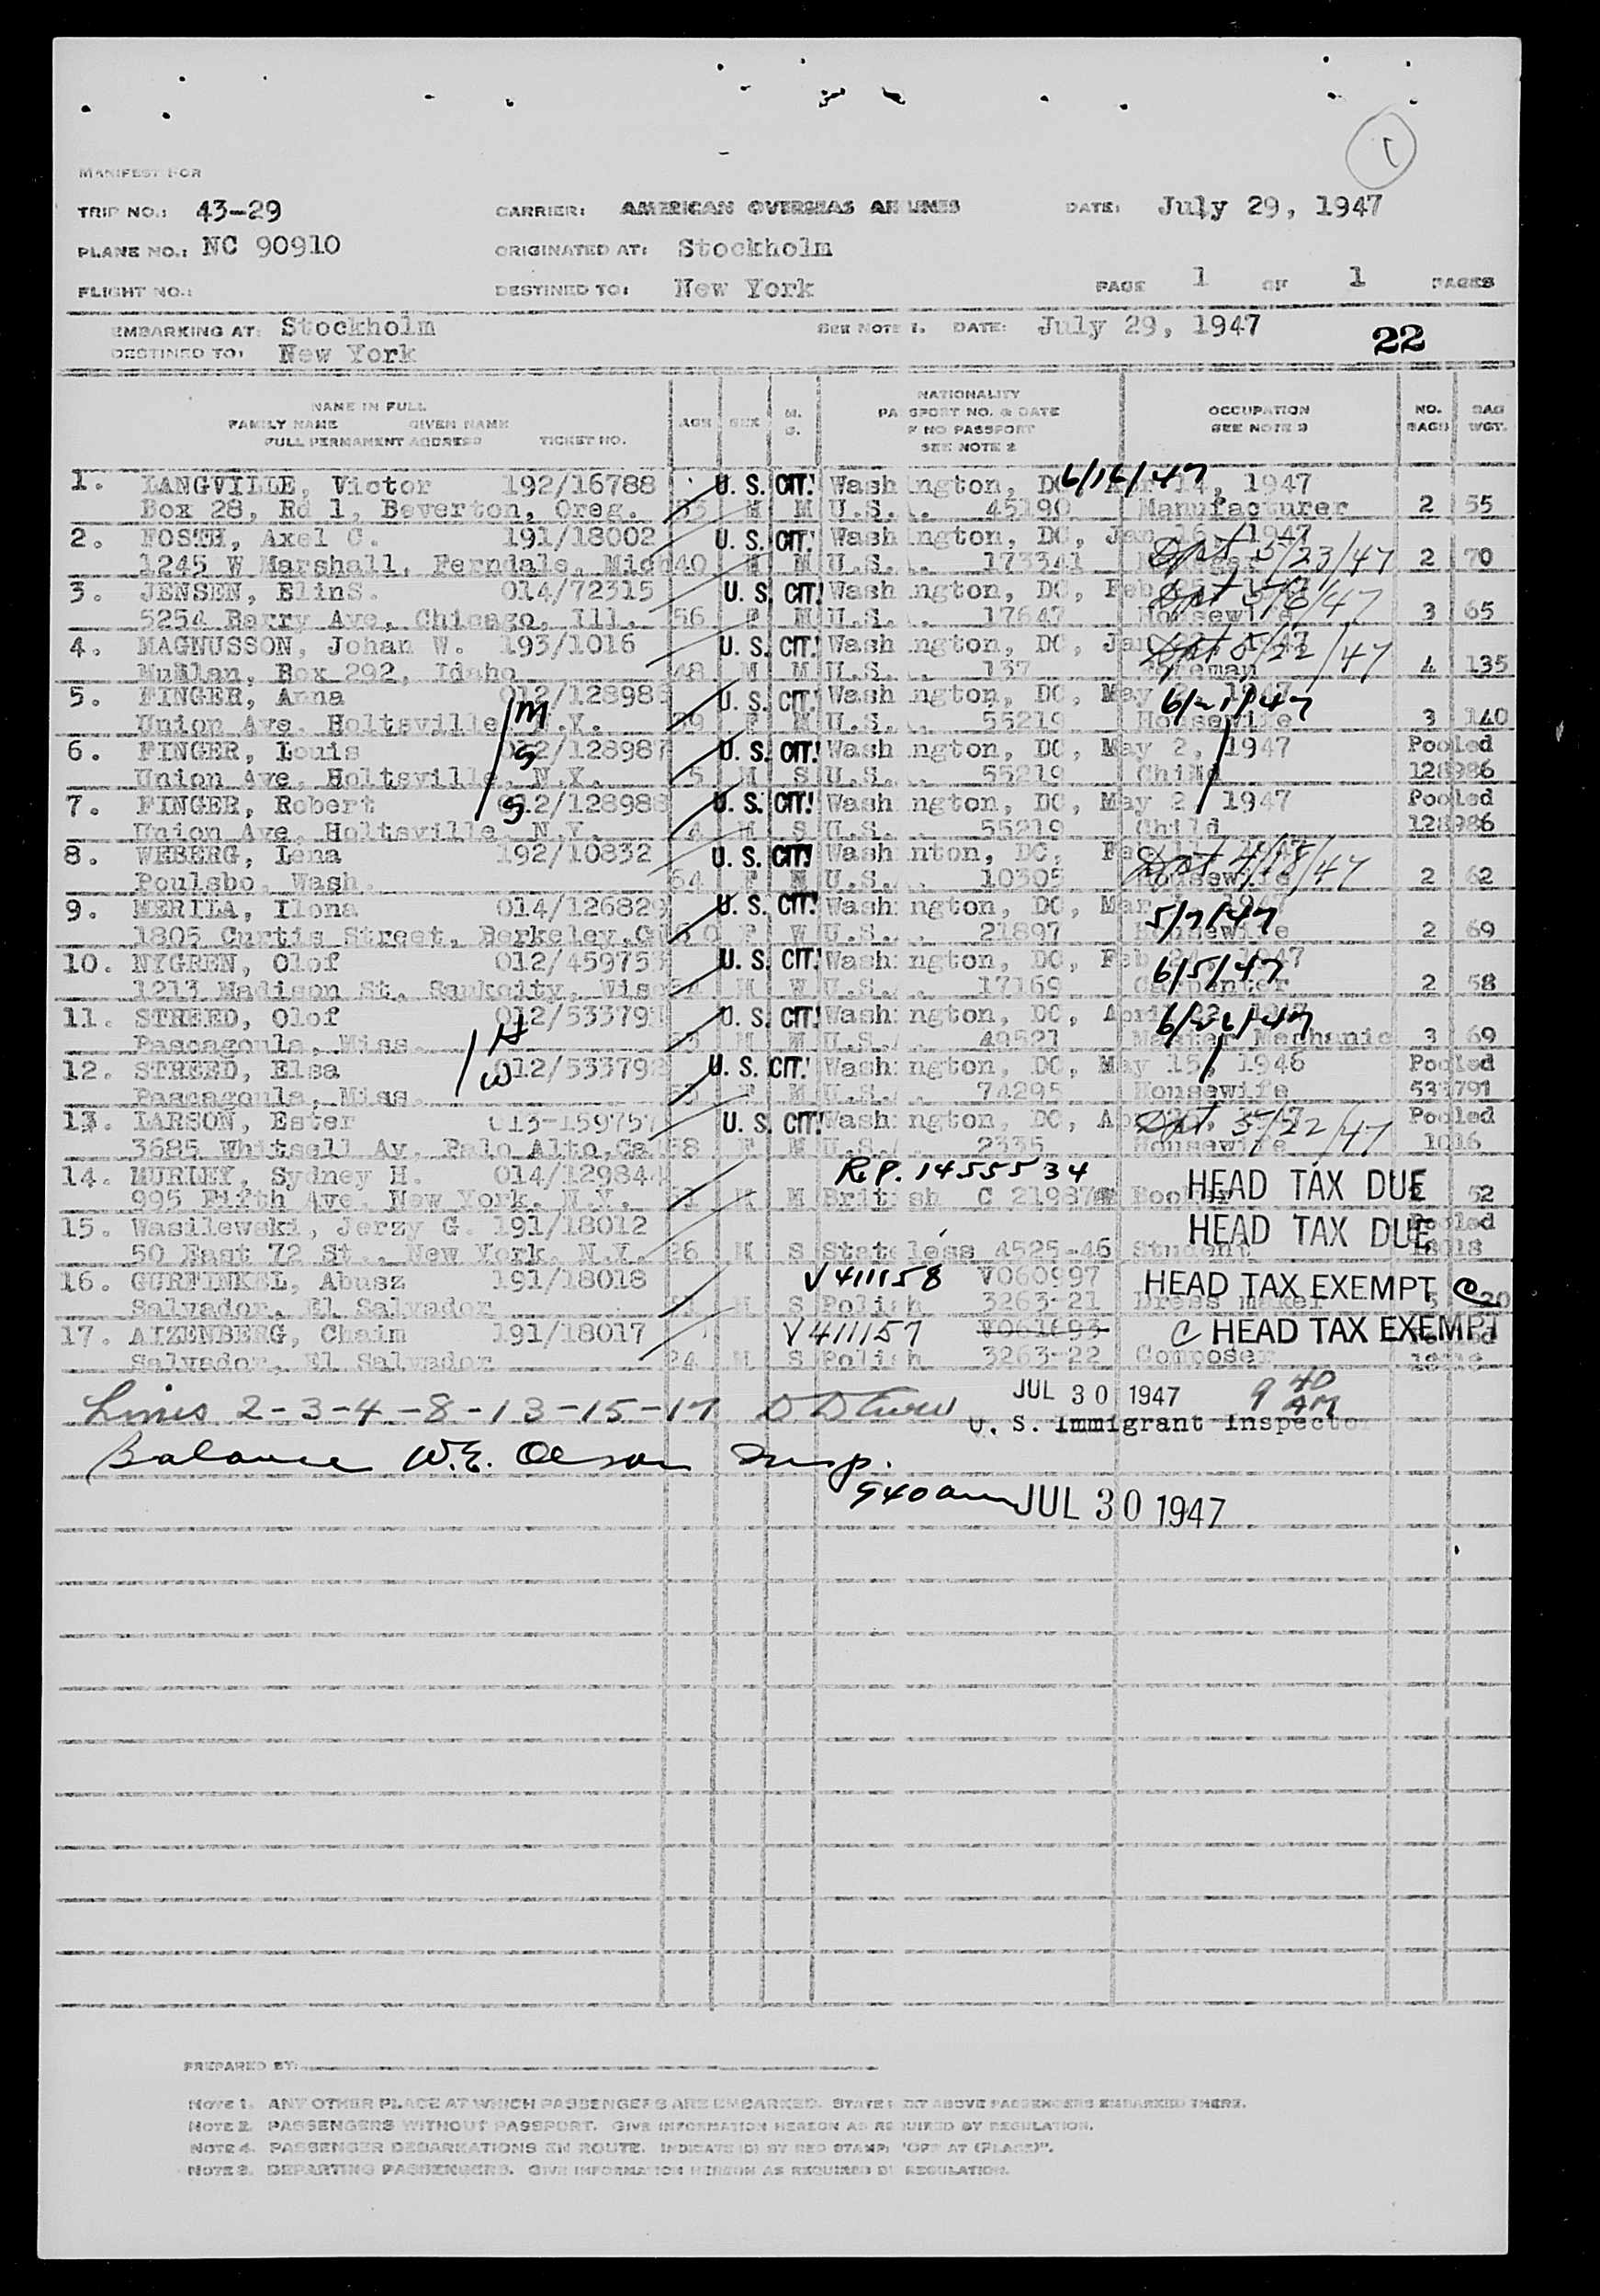 MANIFEST FOR
TRIP NO.: 43-29 CARRIER: AMERICAN OVERSEAS AIRLINES DATE: July 29, 1947
PLANE NO.: NC 90910 ORIGINATED AT: Stockholm
FLIGHT NO.: DESTINED TO: New York PAGE 1 OF 1 PAGES
EMBARKING AT: Stockholm SEE NOTE 1. DATE: July 29, 1947 22
DESTINED TO: New York
NAME IN FULL
FAMILY NAME GIVEN NAME
FULL PERMANENT ADDRESS TICKET NO. AGE SEX M. S.
NATIONALITY
PASSPORT NO. & DATE
IF NO PASSPORT
SEE NOTE 2
OCCUPATION
SEE NOTE 3
NO. BAGS BAG WGT.
1. LANGVILLE, Victor 192/16788 U. S. CIT. Washington, DC 6/16/47 14, 1947
Box 28, Rd 1, Beverton, Oreg. M M U.S. 45190 Manufacturer 2 55
2. FOSTH, Axel C. 191/18002 U. S. CIT. Washington, DC, Jan 16, 1947
1245 W Marshall, Ferndale, Mich 40 M M U.S. 173341 5/23/47 2 70
3. JENSEN, ElinS. 014/72315 U. S. CIT. Washington, DC, Feb
5254 Barry Ave, Chicago, Ill. 56 F M U.S. 17647 Housewife 5/6/47 3 65
4. MAGNUSSON, Johan W. 193/1016 U. S. CIT. Washington, DC, Jan
Mullan, Box 292, Idaho 48 M M U.S. 137 Foreman 5/22/47 4 135
5. FINGER, Anna 012/128986 U. S. CIT. Washington, DC, May 2, 1947
Union Ave. Holtsville, N.Y. M 39 F M U.S. 55219 Housewife 6/21/47 3 140
6. FINGER, Louis 012/128987 U. S. CIT. Washington, DC, May 2, 1947 Pooled
Union Ave, Holtsville, N.Y. S 5 M S U.S. 55219 Child 128986
7. FINGER, Robert 012/128988 U. S. CIT. Washington, DC, May 2, 1947 Pooled
Union Ave, Holtsville, N.Y. S 4 M S U.S. 55219 Child 128986
8. WEBERG, Lena 192/10832 U. S. CIT. Washinton, DC, Feb
Poulsbo, Wash. 64 F M U.S. 10305 Housewife 4/18/47 2 62
9. MERILA, Ilona 014/126829 U. S. CIT. Washington, DC, Mar 1947
1805 Curtis Street, Berkeley, Ca F W U.S. 21897 Housewife 5/7/47 2 69
10. NYGREN, Olof 012/459753 U. S. CIT. Washington, DC, Feb 1947
1213 Madison St, Saukcity, Wisc M W U.S. 17169 Carpenter 6/5/47 2 58
11. STREED, Olof 012/533791 U. S. CIT. Washington, DC, April 22, 1947
Pascagoula, Miss. H M M U.S. 49521 Master Mechanic 6/26/47 3 69
12. STREED, Elsa 012/533792 U. S. CIT. Washington, DC, May 15, 1946 Pooled
Pascagoula, Miss. W 53 F M U.S. 74295 Housewife 533791
13. LARSON, Ester 013-159757 U. S. CIT. Washington, DC, Apr Pooled
3685 Whitsell Av, Palo Alto, Ca 58 F M U.S. 2335 Housewife 5/22/47 1016
14. MURLEY, Sydney H. 014/129844 R.P. 1455534 HEAD TAX DUE
995 Fifth Ave, New York, N.Y. M M British C 21987 52
15. Wasilewski, Jerzy G. 191/18012 HEAD TAX DUE Pooled
50 East 72 St., New York, N.Y. 26 M S Stateless 4525-46 Student 18018
16. GURFINKEL, Abusz 191/18018 V411158 V060997 HEAD TAX EXEMPT C
Salvador, El Salvador M S Polish 3263-21 Dress maker 5
17. AIZENBERG, Chaim 191/18017 V411157 V061693 C HEAD TAX EXEMPT
Salvador, El Salvador 24 M S Polish 3263-22 Composer
Lines 2-3-4-8-13-15-17 JUL 30 1947 9 40 AM
U. S. Immigrant Inspector
Balance W.E. Olson Insp.
940 am JUL 30 1947
PREPARED BY:
NOTE 1. ANY OTHER PLACE AT WHICH PASSENGERS ARE EMBARKED. STATE: LIST ABOVE PASSENGERS EMBARKED THERE.
NOTE 2. PASSENGERS WITHOUT PASSPORT. GIVE INFORMATION HEREON AS REQUIRED BY REGULATION.
NOTE 4. PASSENGER DEBARKATIONS EN ROUTE. INDICATE (D) BY RED STAMP: "OFF AT (PLACE)".
NOTE 3. DEPARTING PASSENGERS. GIVE INFORMATION HEREON AS REQUIRED BY REGULATION.